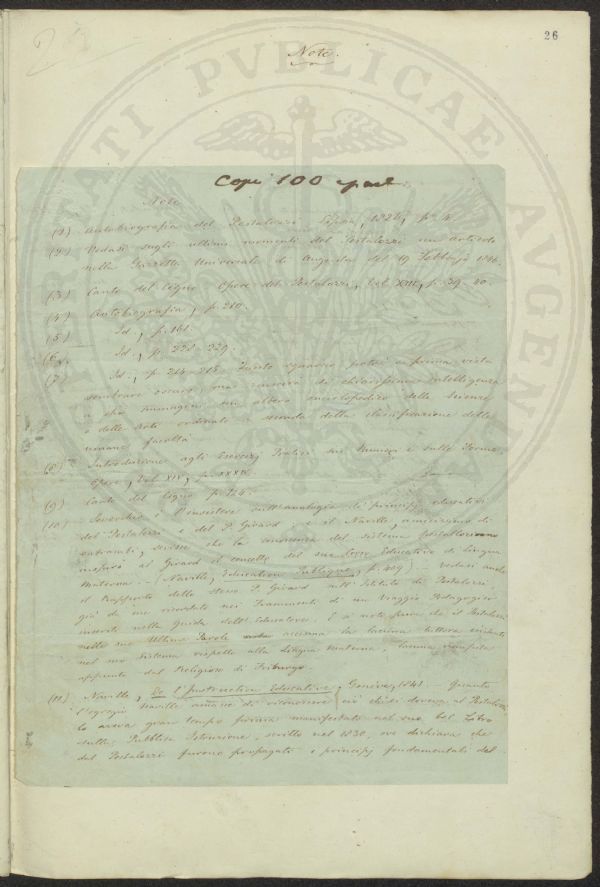 26
Note.
Copie 100
Note
(1) Autobiografia del Pestalozzi, 1826, p. 4.
(2) Vedasi sugli ultimi momenti del Pestalozzi un articolo
nella Gazzetta Universale di Augusta del 19 Febbrajo
(3) Canto del Cigno. Opere del Pestalozzi, Vol. XIII, p. 39-40.
(4) Autobiografia, p. 210.
(5) Id., p. 161.
(6) Id., p. 228-229.
(7) Id., p. 214-215. Questo potrà a prima vista
sembrare oscuro, ma di chiarissima intelligenza
a chi un albero enciclopedico delle Scienze
e delle Arti ordinato a seconda della classificazione delle
umane facoltà.
(8) Introduzione agli Esercizj sui Numeri e sulle Forme.
Opere, Vol. XIV, p. XXXIV.
(9) Canto del Cigno, p.
(10) Soverchio è l'insistere sull'analogia de' principj educativi
del Pestalozzi e del P. Girard e il Naville,
entrambi, scrisse che la conoscenza del sistema Pestalozziano
inspirò al Girard il concetto del suo Corso Educativo di Lingua
Materna. - (Naville, Education Publique, p. 409) - Vedasi anche
il Rapporto dello stesso P. Girard sull'Istituto di Pestalozzi
già da me ricordato nei Frammenti di un Viaggio Pedagogico
inseriti nella Guida dell'Educatore. È noto pure che il Pestalozzi
nelle sue Ultime Parole accenna la lacuna tuttora esistente
nel suo sistema rispetto alla Lingua Materna, lacuna riempita
appunto dal Religioso di Friburgo.
(11) Naville, De l'Instruction Educative, Genève, 1841. - Quanto
l'egregio Naville di riconoscere ciò che si doveva al Pestalozzi
lo aveva gran tempo prima manifestato nel suo bel Libro
sulla Pubblica Istruzione, scritto nel 1830, ove dichiara che
dal Pestalozzi furono propagati i principj fondamentali del
PVBLICAE AVGENDAE